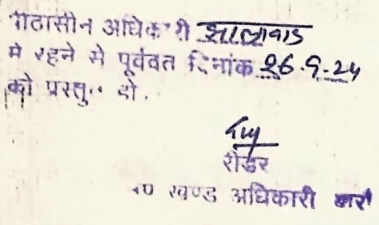 पीठासीन अधिकारी झालावाड
मे रहने से पूर्ववत दिनांक 26.9.24
को प्रस्तुत हो.
रीडर
खण्ड अधिकारी